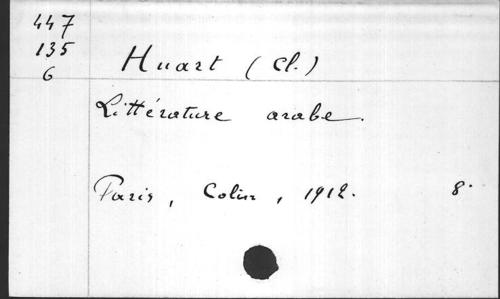 447
135
6
Huart (Cl.)
Littérature arabe.
Paris, Colin, 1912. 8°